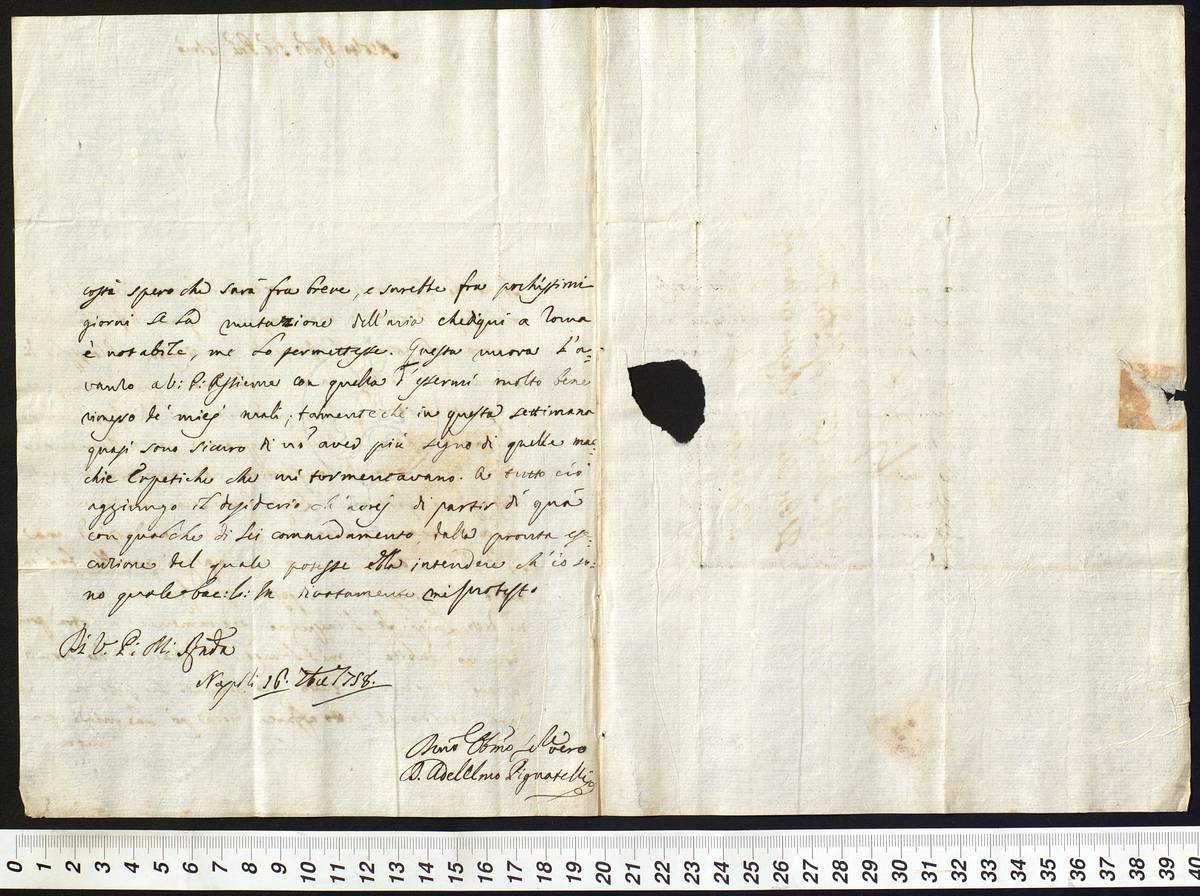 costà spero che sarà fra breve, e sarebbe fra pochissimi
giorni se la mutazione dell'aria che di qui a Roma
è notabile, me lo permettesse. Questa nuova l'a=
vanzo a V: P: Ill:ma con quella d'essermi molto bene
rimesso de' miej mali; talmente chè in questa settimana
quasi sono sicuro di nõ aver più segno di quelle mac=
chie Erpetiche che mi tormentavano. A tutto ciò
aggiungo il desiderio ch'avrej di partir di quà
con qualche di Lei comandamento dalla pronta es=
cuzione del quale potesse ella intendere ch'io so=
no quale bac: li: M divotamente mi protesto
Di V. P: M:
Napoli 16. 1758.
Obmo vero
D. Adelelmo Pignatelli
0 1 2 3 4 5 6 7 8 9 10 11 12 13 14 15 16 17 18 19 20 21 22 23 24 25 26 27 28 29 30 31 32 33 34 35 36 37 38 39 40